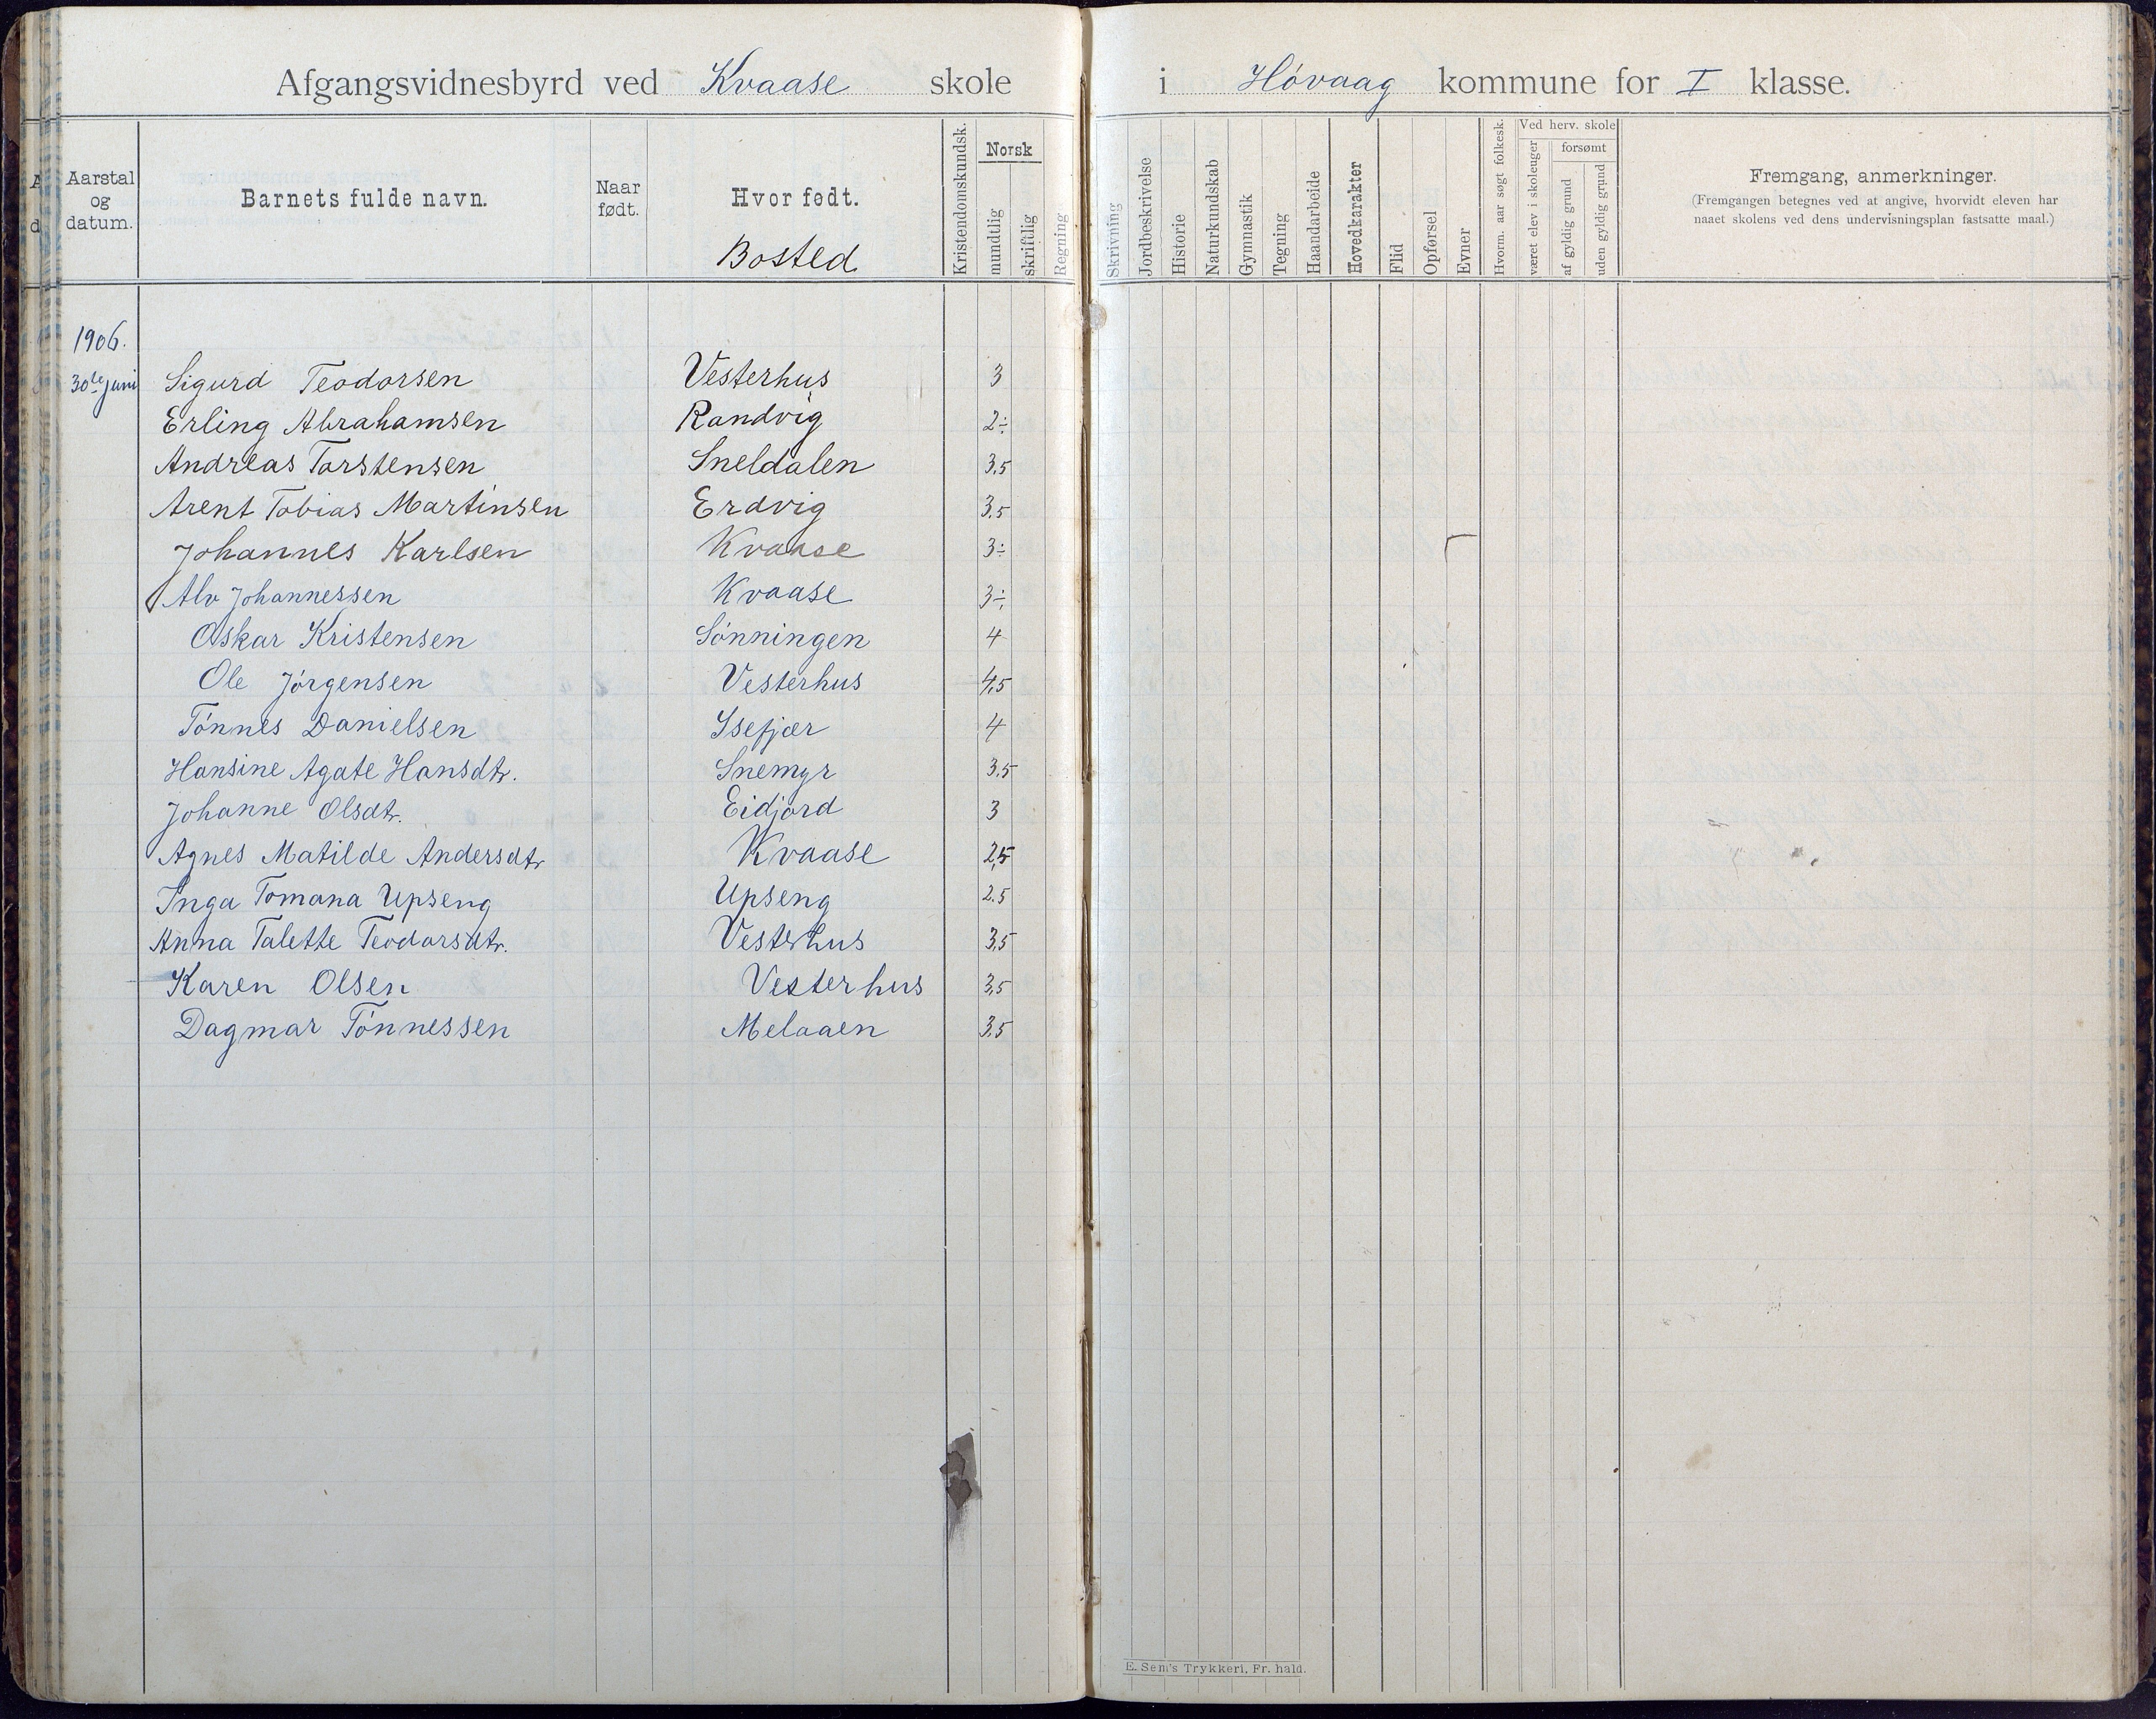 Afgangsvidnesbyrd ved Kvaase skole i Høvaag kommune for I klasse.
Aarstal og datum.
Barnets fulde navn.
Naar født.
Hvor født.
Bosted
Kristendomskundsk.
Norsk
mundtlig
skriftlig
Regning
Skrivning
Jordbeskrivelse
Historie
Naturkundskab
Gymnastik
Tegning
Haandarbeide
Hovedkarakter
Flid
Opførsel
Evner
Hvorm. aar søgt folkesk.
Ved herv. skole
været elev i skoleuger
forsømt
af gyldig grund
uden gyldig grund
Fremgang, anmerkninger.
(Fremgangen betegnes ved at angive, hvorvidt eleven har
naaet skolens ved dens undervisningsplan fastsatte maal.)
1906.
30te juni Sigurd Teodorsen Vesterhus 3
Erling Abrahamsen Randvig 2÷
Andreas Torstensen Sneldalen 3,5
Arent Tobias Martinsen Erdvig 3,5
Johannes Karlsen Kvaase 3÷
Alv Johannessen Kvaase 3÷
Oskar Kristensen Sønningen 4
Ole Jørgensen Vesterhus 4,5
Tønnes Danielsen Isefjær 4
Hansine Agate Hansdtr. Snemyr 3,5
Johanne Olsdtr. Eidjord 3
Agnes Matilde Andersdtr Kvaase 2,5
Inga Tomana Upseng Upseng 2.5
Anna Talette Teodorsdtr. Vesterhus 3,5
Karen Olsen Vesterhus 3,5
Dagmar Tønnessen Melaaen 3,5
E. Sem's Trykkeri, Fr. hald.